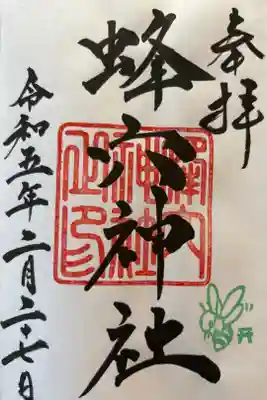 奉拝
蜂穴神社
蜂穴神社之印
令和五年二月二十七日